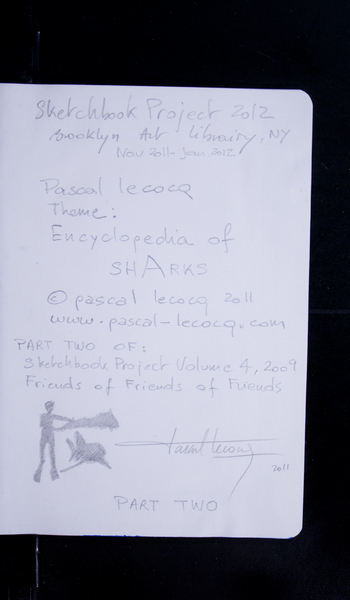 Sketchbook Project 2012
Brooklyn Art Library, NY
Nov 2011- Jan 2012
Pascal lecocq
Theme:
Encyclopedia of
SHARKS
© pascal lecocq 2011
www.pascal-lecocq.com
PART TWO OF:
Sketchbook Project Volume 4, 2009
Friends of Friends of Friends
Pascal Lecocq
2011
PART TWO